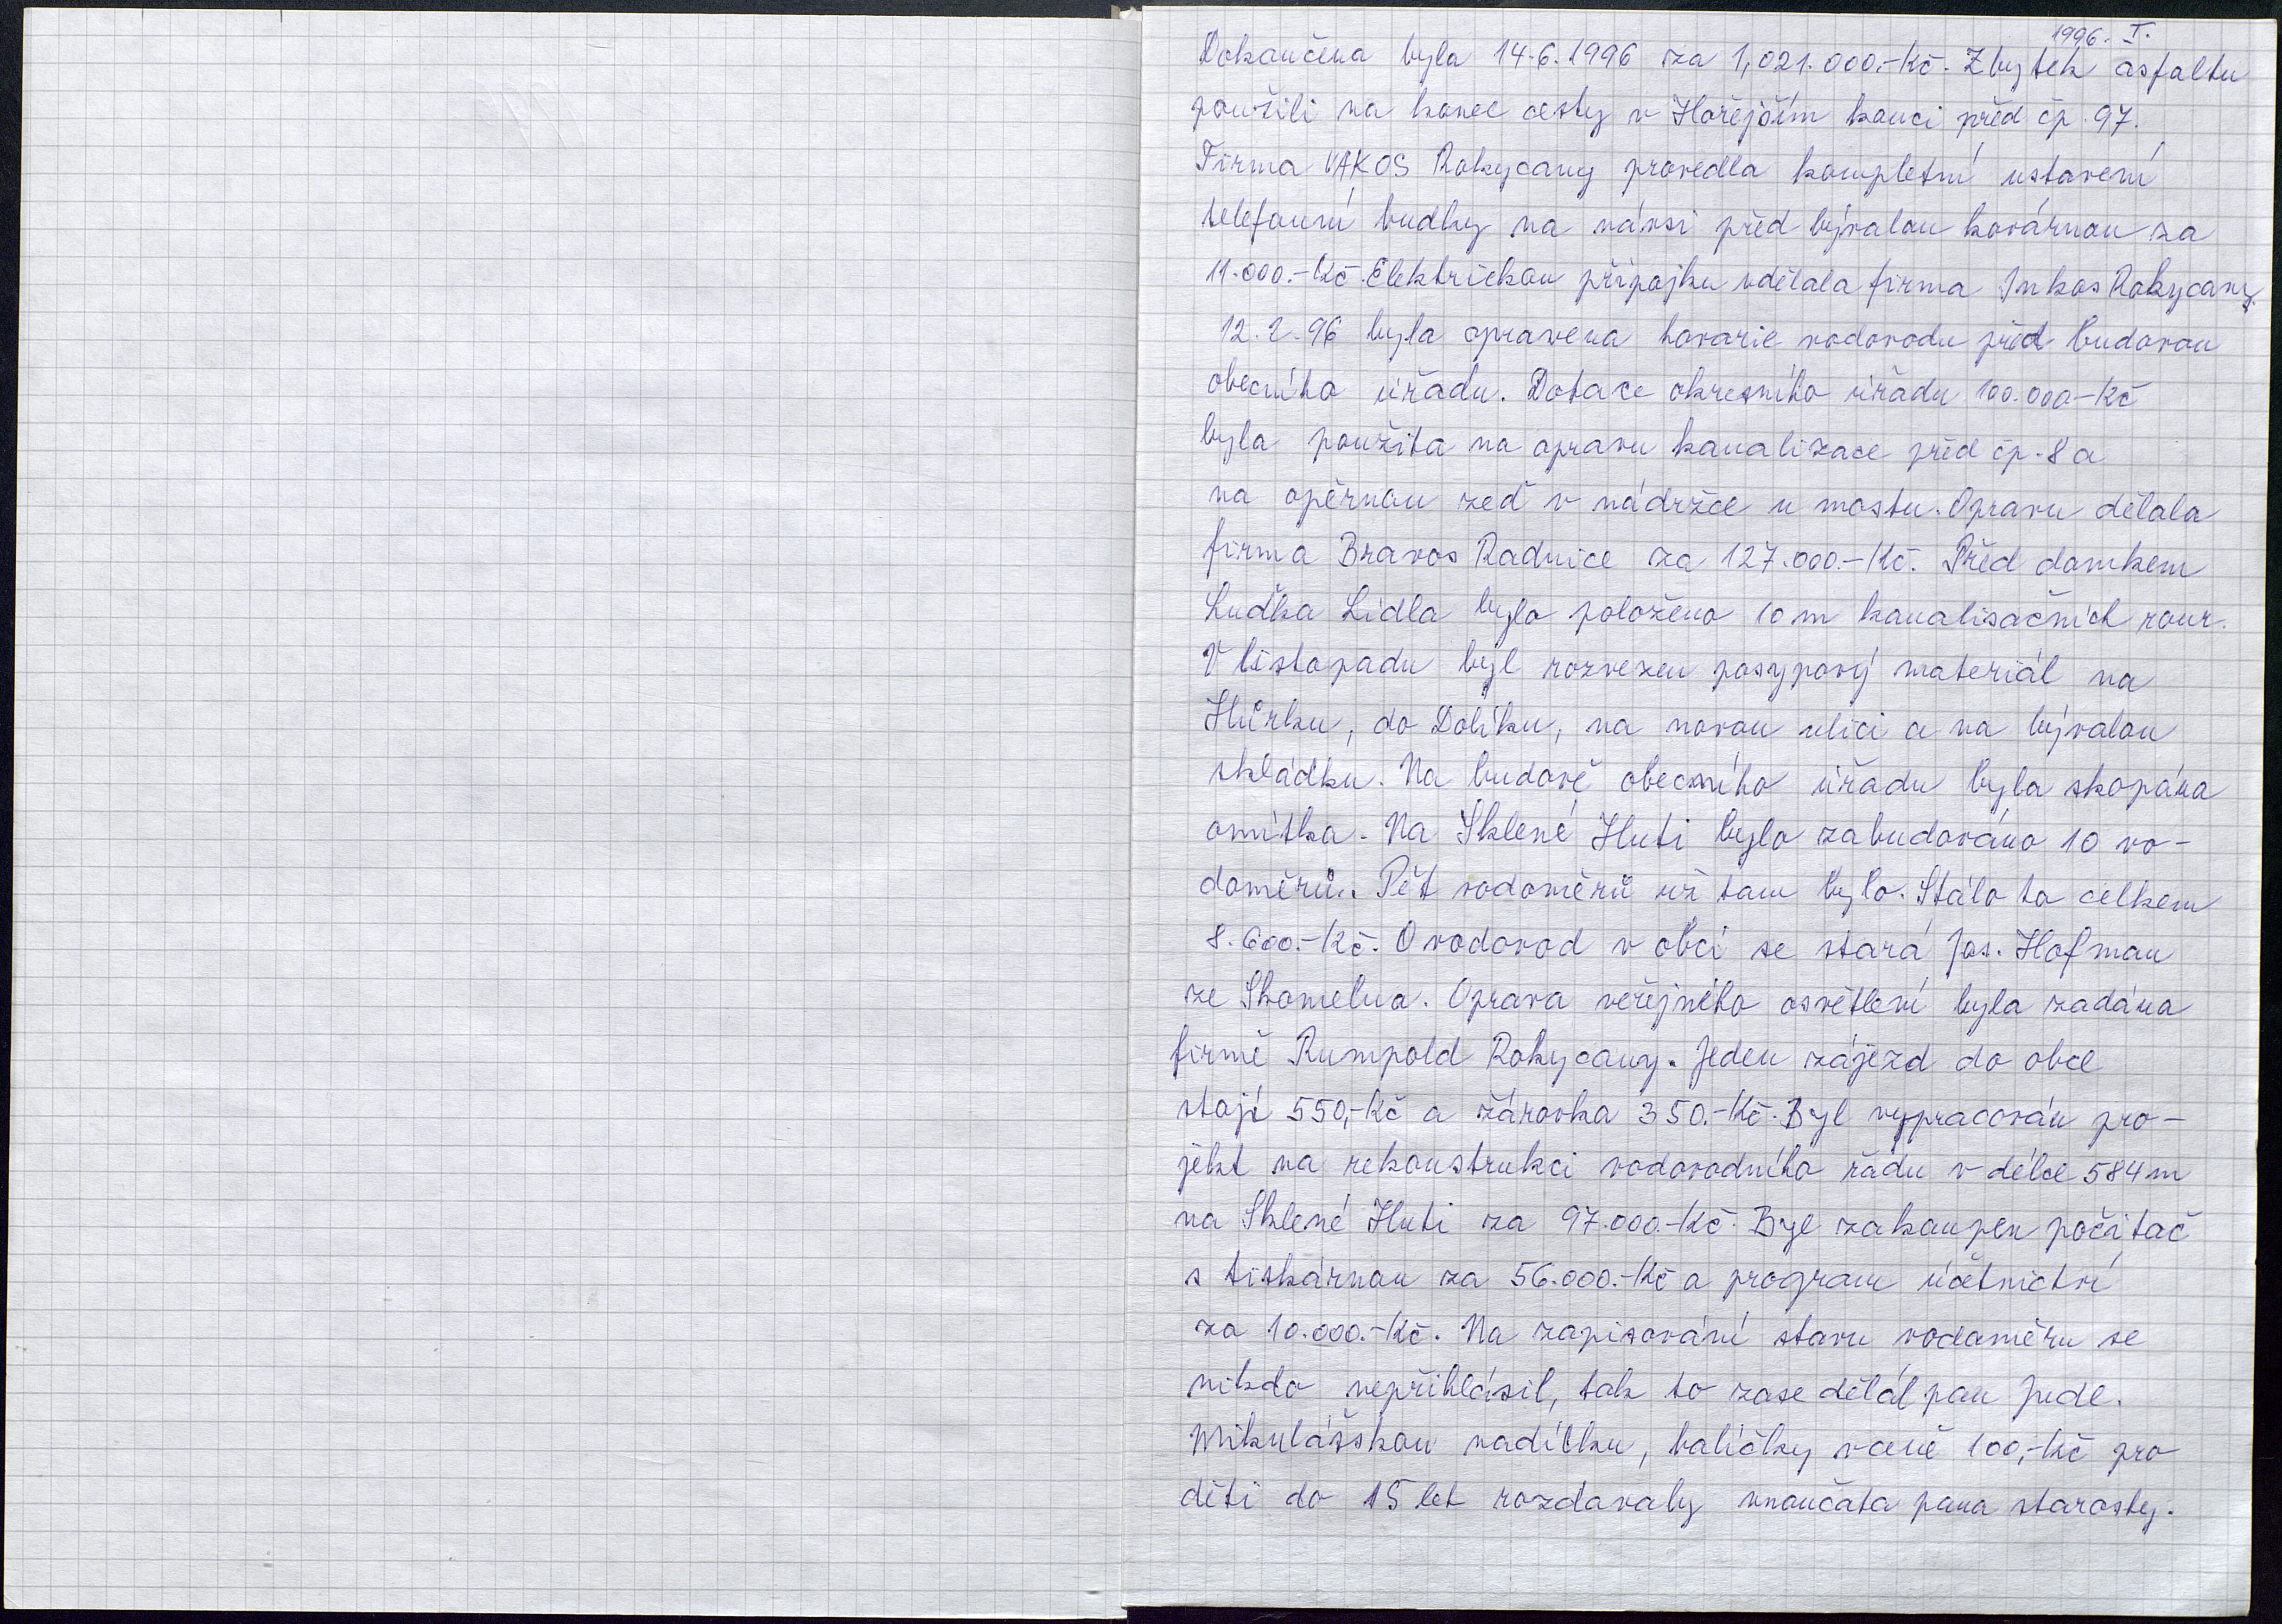 1996. I.
Dokončena byla 14.6.1996 za 1,021.000.-Kč. Zbytek asfaltu
použili na konec cesty v Hořejším konci před čp. 97.
Firma VAKOS Rokycany provedla kompletní ustavení
telefonní budky na návsi před bývalou kovárnou za
11.000.-Kč. Elektrickou přípojku udělala firma Inkos Rokycany.
12.2.96 byla opravena havarie vodovodu před budovou
obecního úřadu. Dotace okresního úřadu 100.000-Kč
byla použita na opravu kanalizace před čp. 8 a
na opěrnou zeď v nádržce u mostu. Opravu dělala
firma Bravos Radnice za 127.000.-Kč. Před domkem
Luďka Lidla bylo položeno 10 m kanalisačních rour.
V listopadu byl rozvezen posypový materiál na
Hůrku, do Dolíku, na novou ulici a na bývalou
skládku. Na budově obecního úřadu byla skopána
omítka. Na Sklené Huti bylo zabudováno 10 vo-
doměrů. Pět vodoměrů už tam bylo. Stálo to celkem
8.600.-Kč. O vodovod v obci se stará Jos. Hofman
ze Skomelna. Oprava veřejného osvětlení byla zadána
firmě Rumpold Rokycany. Jeden zájezd do obce
stojí 550,-Kč a žárovka 350.-Kč. Byl vypracován pro-
jekt na rekonstrukci vodovodního řádu v délce 584 m
na Sklené Huti za 97.000.-Kč. Byl zakoupen počítač
s tiskárnou za 56.000.-Kč a program účetnictví
za 10.000.-Kč. Na zapisování stavu vodoměru se
nikdo nepřihlásil, tak to zase dělal pan Jedl.
Mikulášskou nadílku, balíčky v ceně 100,-Kč pro
děti do 15 let rozdavaly vnoučata pana starosty.